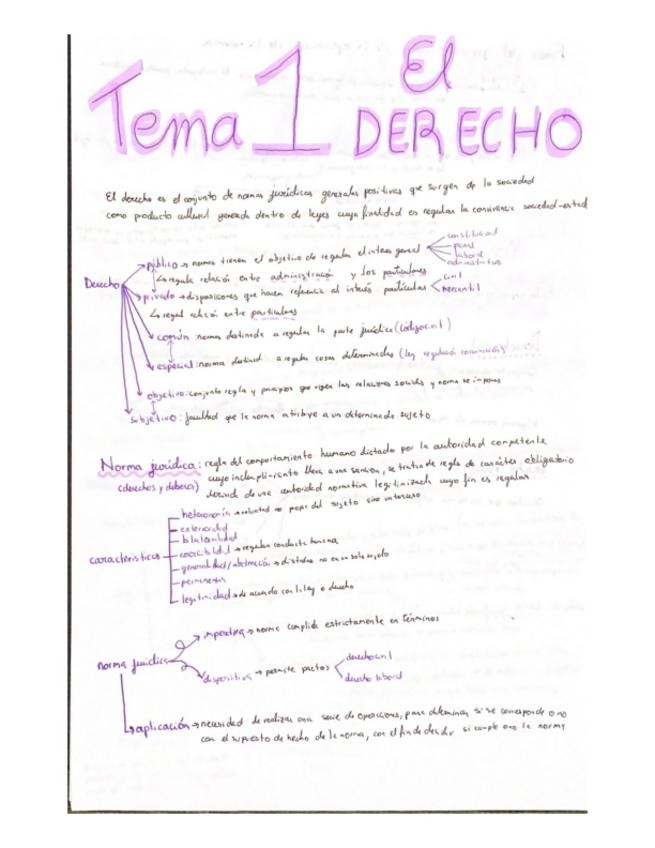 Tema 1 El DERECHO
El derecho es el conjunto de normas jurídicas generales positivas que surgen de la sociedad
como producto cultural generada dentro de leyes cuya finalidad es regular la convivencia sociedad-estad
Derecho
público → normas tienen el objetivo de regular el interes general
constitucional
penal
laboral
administrativo
↳ regula relación entre administración y los particulares
privado → disposiciones que hacen referencia al interés particular
civil
mercantil
↳ regul relación entre particulares
común: norma destinada a regular la parte jurídica (código civil)
especial: norma destinad a regular cosas determinadas (ley
objetivo: conjunto regla y principios que rigen las relaciones sociales y norma se impone
subjetivo: facultad que la norma atribuye a un determinado sujeto
Norma jurídica: regla del comportamiento humano dictado por la autoridad competente
(derechos y deberes) cuyo incumplimiento lleva a una sanción, se trata de regla de carácter obligatorio
deriva de una autoridad normativa legitimizada cuyo fin es regular
características
heteronomía → voluntad no del sujeto sino
exterioridad
bilateralidad
coercibilidad → regulan conducta humana
generalidad/abstracción → distintos no en un solo sujeto
permanencia
legitimidad → de acuerdo con la ley o derecho
norma jurídica
imperativa → norma cumplida estrictamente en términos
dispositiva → permite pactos
derecho civil
derecho laboral
↳ aplicación → necesidad de realizar una serie de operaciones, para determinar si se corresponde o no
con el supuesto de hecho de la norma, con el fin de decidir si cumple o no la norma